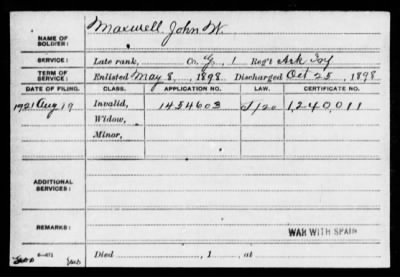 NAME OF SOLDIER: Maxwell John W.
SERVICE: Late rank, Co. G, 1 Reg't Ark Inf
TERM OF SERVICE: Enlisted May 8, 1898. Discharged Oct 25, 1898
DATE OF FILING. CLASS. APPLICATION NO. LAW. CERTIFICATE NO.
1921 Aug 19 Invalid, 1454603 1,240,011
Widow,
Minor,
ADDITIONAL SERVICES:
REMARKS: WAR WITH SPAIN
Died , 1 , at